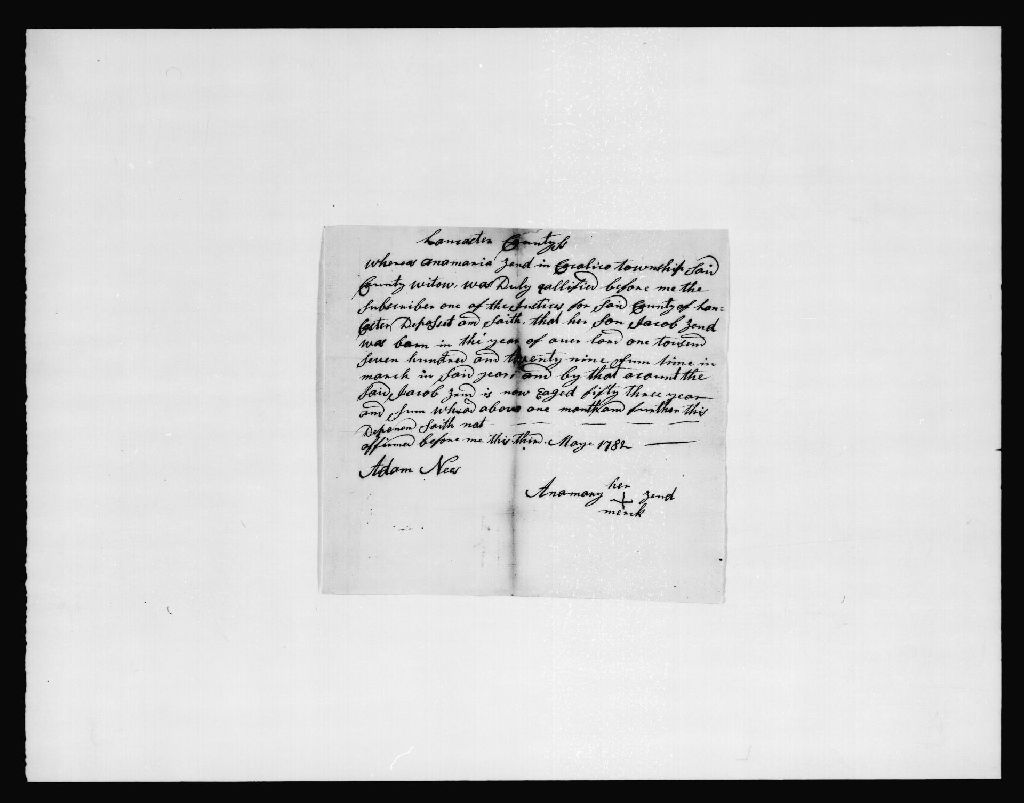 Lancaster County Ss
Whereas anamaria Zend in Cocalico township Said
County witow. was Duly qallified before me the
Subscriber one of the Justices for Said County of Lan=
Caster Deposeit and Saith. that her Son Jacob Zend
was born in the year of auer Lord one tousend
Seven hundred and twenty nine sum time in
march in Said year and by that acount the
Said Jacob Zend is now eaged fifty three year
and sum above one month and further this
Deponen Saith not
affirmed before me this third. Maye 1782
Adam Nees
her
Anamary + Zend
merck